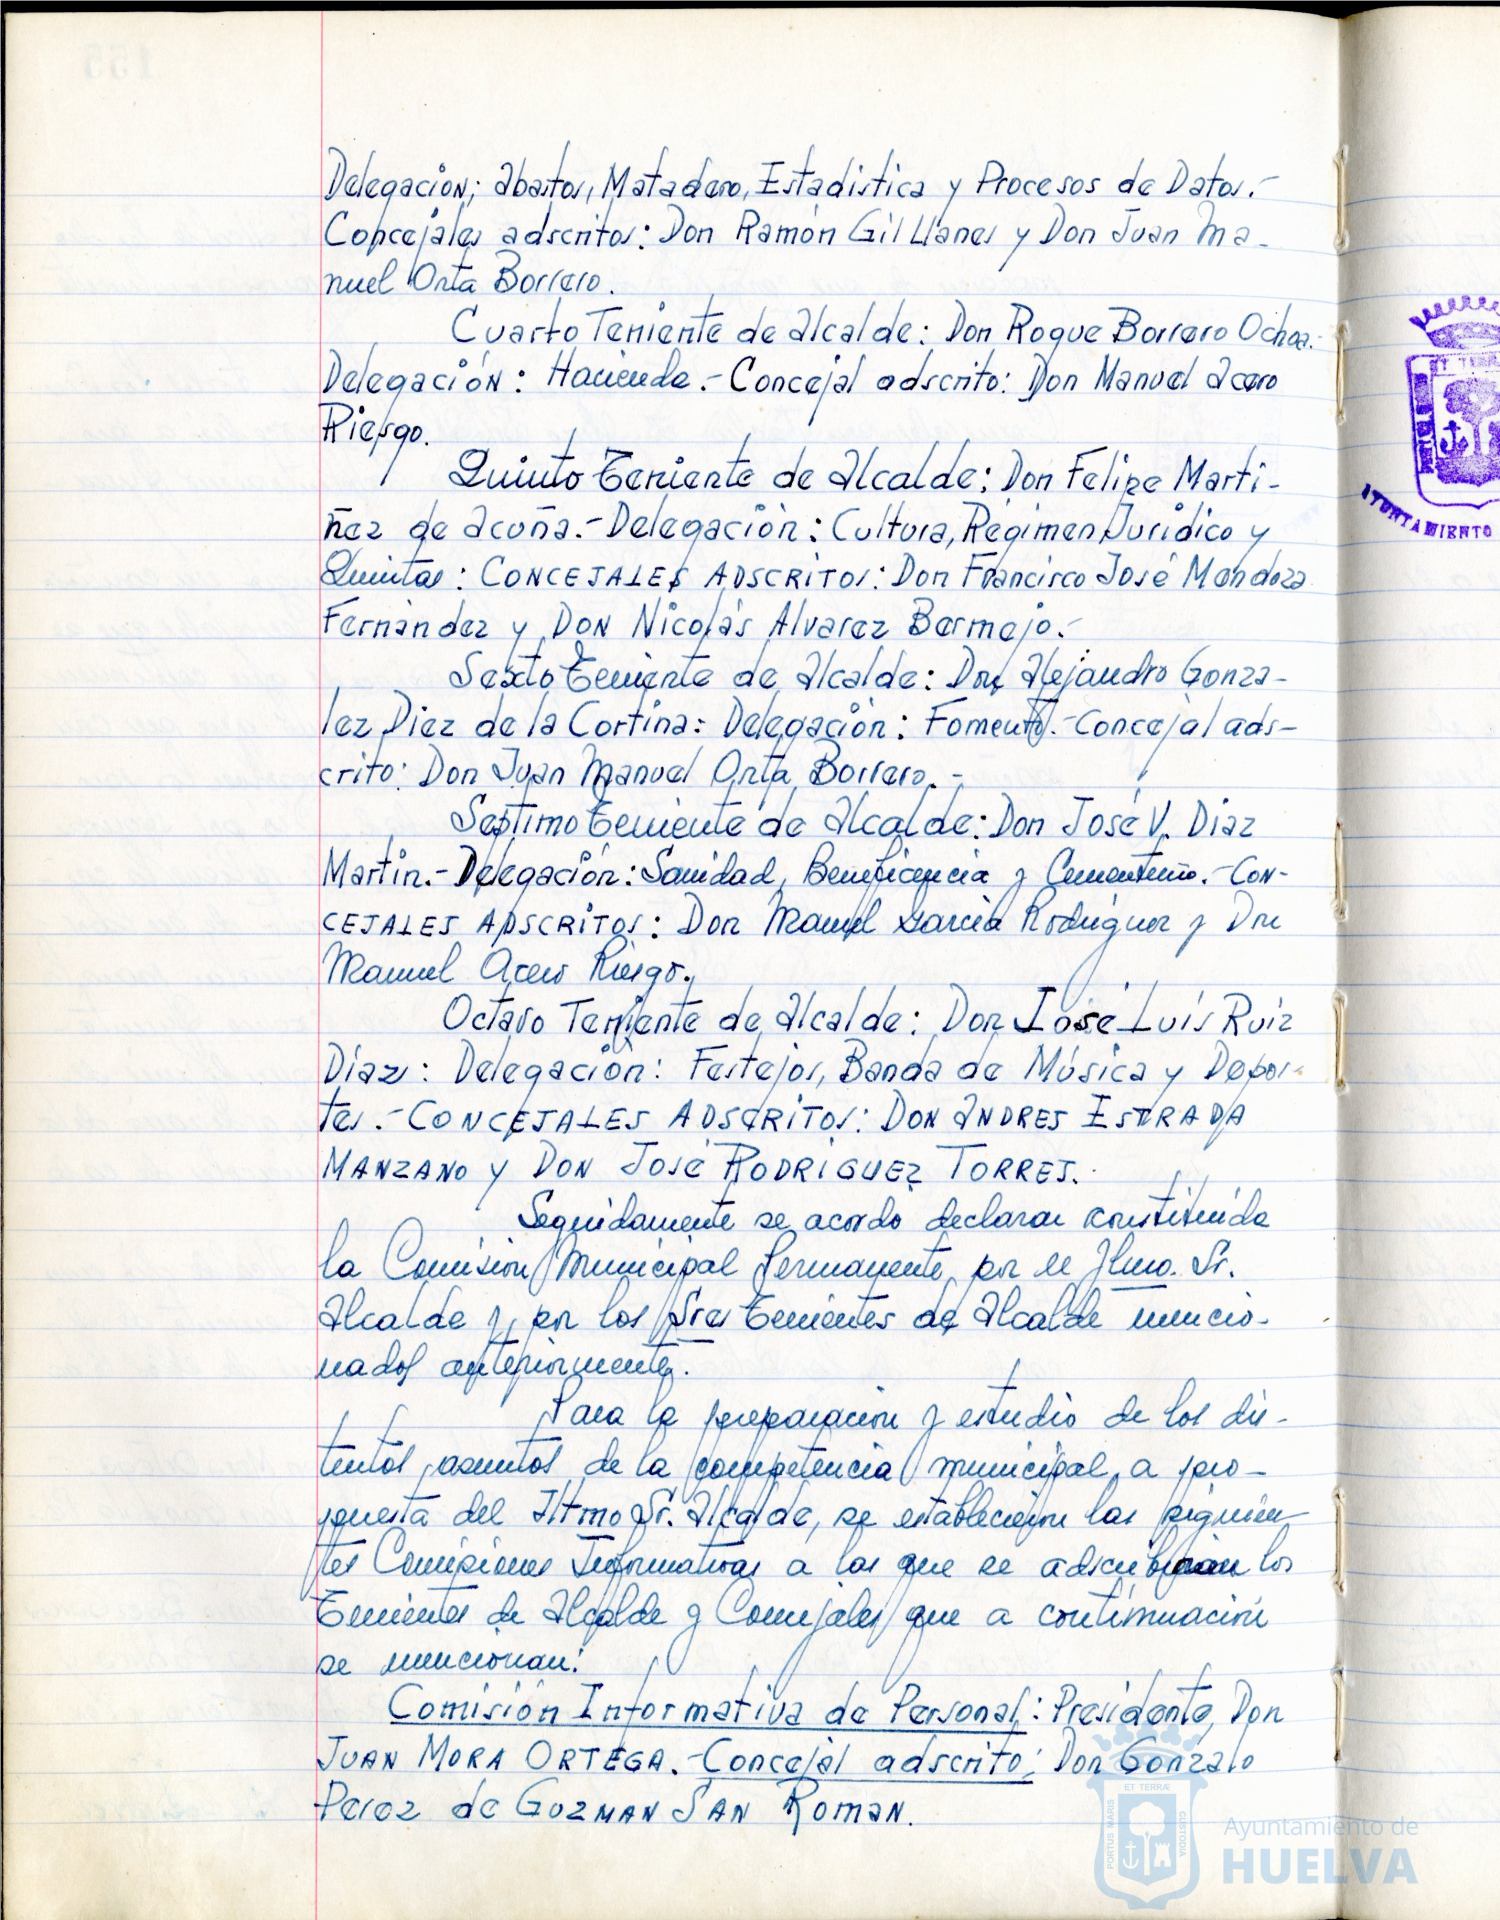 Delegación; abastos, Matadero, Estadistica y Procesos de Datos.-
Concejales adscritos: Don Ramón Gil Llanes y Don Juan Ma-
nuel Orta Borrero.
Cuarto Teniente de alcalde: Don Roque Borrero Ochoa.-
Delegación: Hacienda.- Concejal adscrito: Don Manuel acero
Riesgo.
Quinto Teniente de alcalde: Don Felipe Marti-
ñez de acuña.- Delegación: Cultura, Régimen Juridico y
Quintas: CONCEJALES ADSCRITOS: Don Francisco José Mendoza
Fernàndez y DON Nicolás Alvarez Bermejo.-
Sexto Teniente de alcalde: Don Alejandro Gonza-
lez Diez de la Cortina: Delegación: Fomento.- Concejal ads-
crito: Don Juan Manuel Orta Borrero.-
Septimo Teniente de alcalde: Don José V. Diaz
Martin.- Delegación: Sanidad, Beneficencia y Cementerio.- CON-
CEJALES ADSCRITOS: Don Manuel Garcia Rodriguez y Don
Manuel Acero Riesgo.
Octavo Teniente de alcalde: Don José Luís Ruiz
Díaz: Delegación: Festejos, Banda de Música y Depor-
tes.- CONCEJALES ADSCRITOS: DON ANDRES ESTRADA
MANZANO y DON JOSÉ RODRÍGUEZ TORRES.
Seguidamente se acordó declarar constituida
la Comisión Municipal Permanente, por el Ilmo. Sr.
alcalde y por los Sres Tenientes de alcalde mencio-
nados anteriormente.
Para la preparación y estudio de los dis-
tintos asuntos de la competencia municipal, a pro-
puesta del Iltmo Sr. alcalde, se establecieron las siguien-
tes Comisiones Informativas a las que se adscribirian los
Tenientes de alcalde y Concejales que a continuación
se mencionan:
Comisión Informativa de Personal: Presidente, Don
JUAN MORA ORTEGA.- Concejal adscrito: Don Gonzalo
Perez de GUZMAN SAN ROMAN.
ET TERRA
PORTUS MARIS
AYUNTAMIENTO
ET TERRÆ
PORTUS MARIS
CUSTODIA
Ayuntamiento de
HUELVA